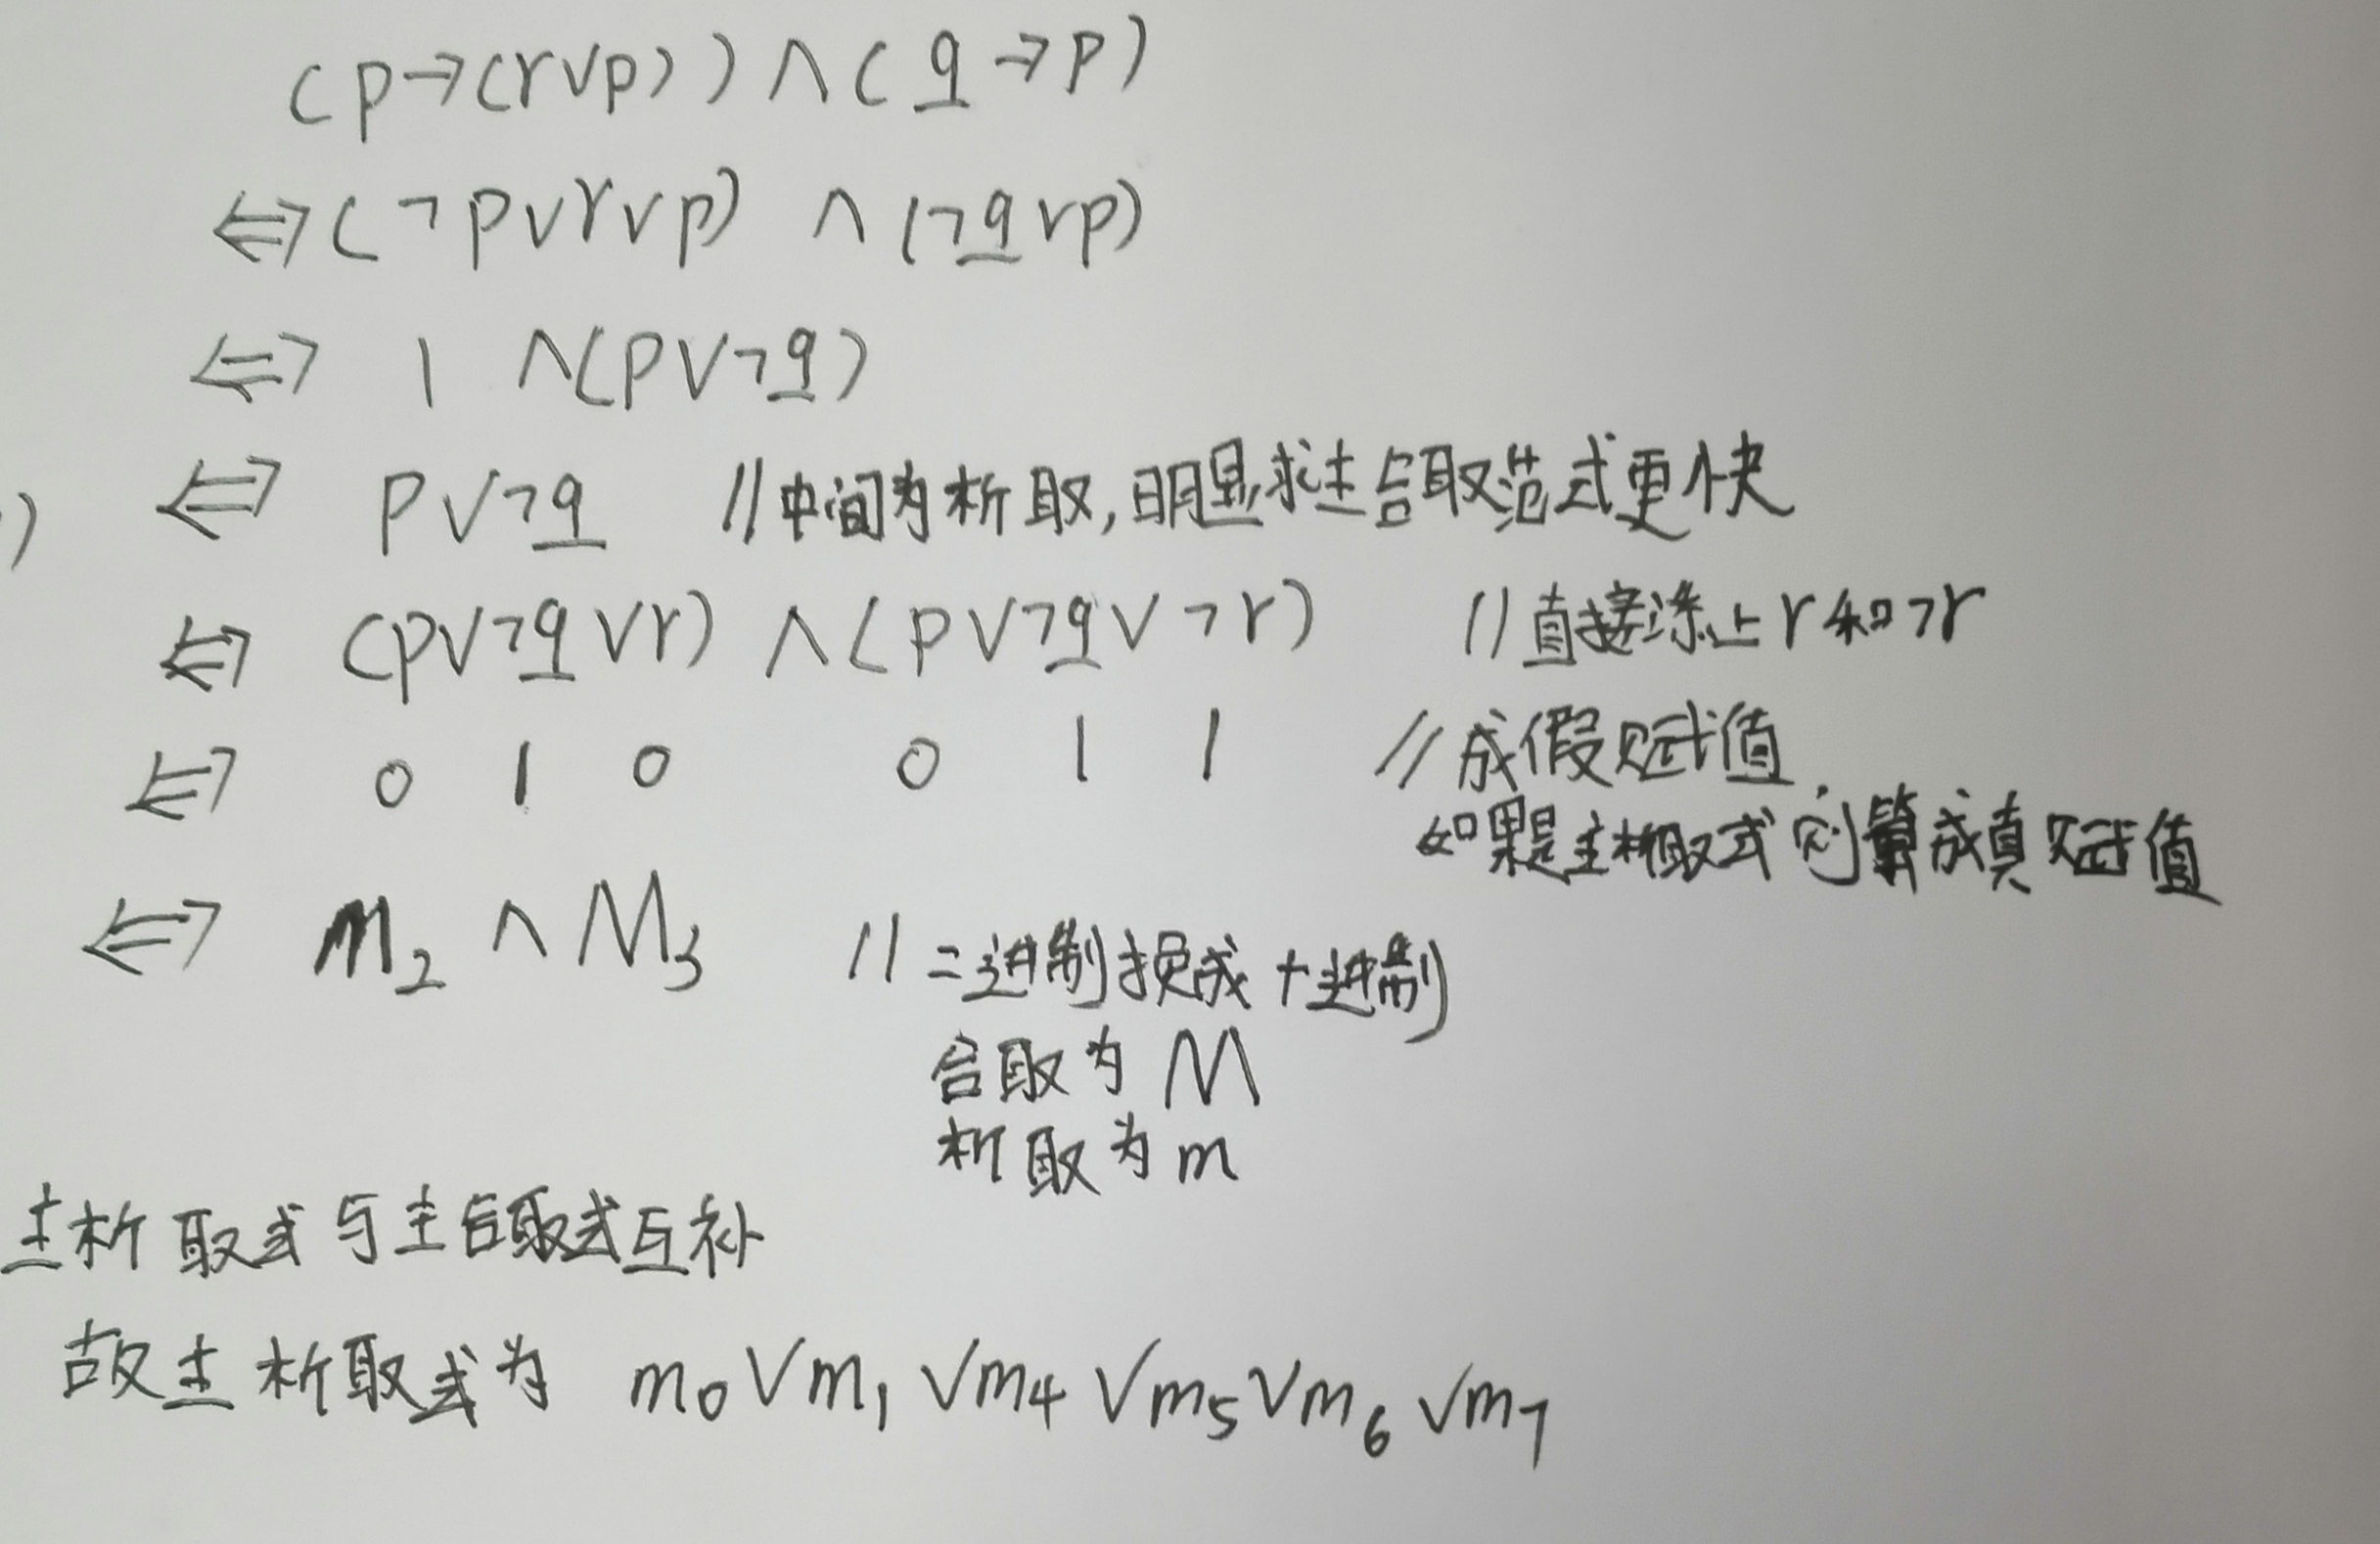 (p→(r∨p))∧(q→p)
⇔(¬p∨r∨p)∧(¬q∨p)
⇔ 1 ∧(p∨¬q)
) ⇔ p∨¬q //中间为析取,明显求主合取范式更快
⇔ (p∨¬q∨r)∧(p∨¬q∨¬r) //直接添上r和¬r
⇔ 0 1 0 0 1 1 //成假赋值.
如果是主析取式则算成真赋值
⇔ M₂∧M₃ //二进制换成十进制
合取为M
析取为m
主析取式与主合取式互补
故主析取式为 m₀∨m₁∨m₄∨m₅∨m₆∨m₇